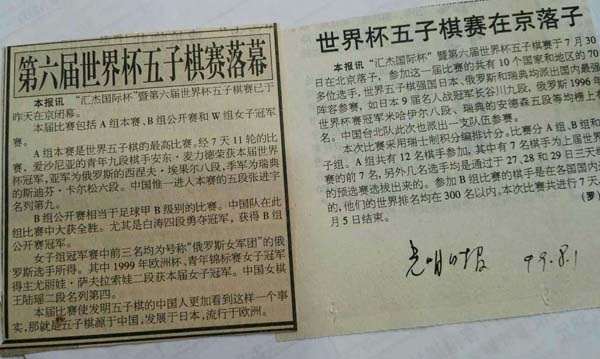 第六届世界杯五子棋赛落幕
本报讯 “汇杰国际杯”暨第六届世界杯五子棋赛已于
昨天在京闭幕。
本届比赛包括A组本赛、B组公开赛和W组女子冠军
赛。
A组本赛是世界五子棋的最高比赛。经7天11轮的比
赛，爱沙尼亚的青年九段棋手安东·麦力德荣获本届世界
杯冠军，亚军为俄罗斯的西涅夫·埃果尔八段，季军为瑞典
的斯迪芬·卡尔松六段。中国惟一进入本赛的五段张进宇
名列第九。
B组公开赛相当于足球甲B级别的比赛。中国队在此
组比赛中大获全胜。尤其是白涛四段勇夺冠军，获得B组
公开赛冠军。
女子组冠军赛中前三名均为号称“俄罗斯女军团”的俄
罗斯选手所得。其中1999年欧洲杯，青年锦标赛女子冠军
得主尤丽娃·萨夫拉索娃二段获本届女子冠军。中国女棋
王陆瑶二段名列第四。
本届比赛使发明五子棋的中国人更加看到这样一个事
实，那就是五子棋源于中国，发展于日本，流行于欧洲。
世界杯五子棋赛在京落子
本报讯 “汇杰国际杯”暨第六届世界杯五子棋赛于7月30
日在北京落子。参加这一届比赛的共有10个国家和地区的70
多位选手，世界五子棋强国日本、俄罗斯和瑞典均派出国内最强
阵容参赛，如日本9届名人战冠军长谷川九段，俄罗斯1996年
世界杯赛冠军米哈伊尔八段、瑞典的安德森五段等均榜上有
名。中国台北队此次也派出一支队伍参赛。
本次比赛采用瑞士制积分编排计分。比赛分A组、B组和
子组。A组共有12名棋手参加，其中有7名棋手为上届世
赛的前7名，另外几名选手均是通过于27、28和29日三天
的预选赛选拔出来的。参加B组比赛的棋手是在各国国内
的，他们的世界排名均在300名以内。本次比赛共进行7天，
月5日结束。
（罗
光明日报 99.8.1